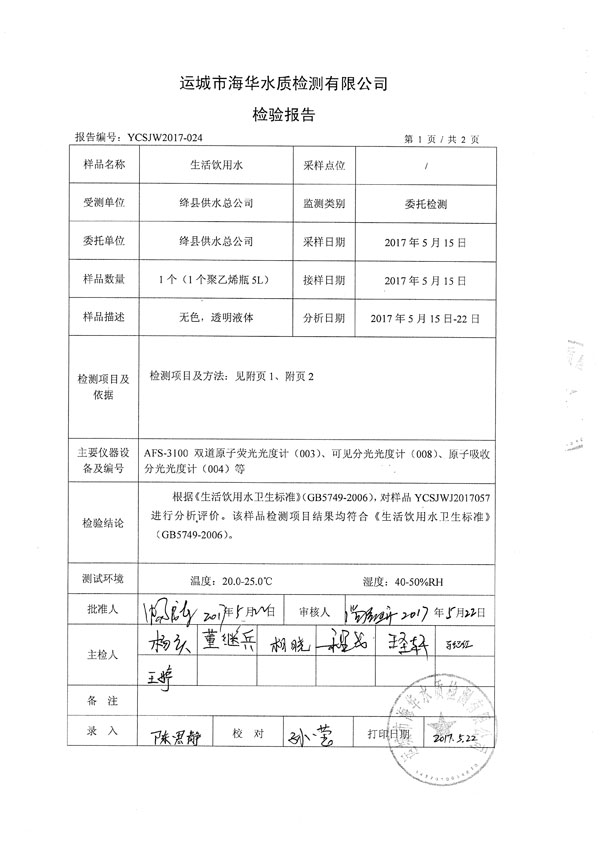 运城市海华水质检测有限公司
检验报告
报告编号：YCSJW2017-024 第 1 页 / 共 2 页
样品名称 生活饮用水 采样点位 /
受测单位 绛县供水总公司 监测类别 委托检测
委托单位 绛县供水总公司 采样日期 2017 年 5 月 15 日
样品数量 1 个（1 个聚乙烯瓶 5L） 接样日期 2017 年 5 月 15 日
样品描述 无色，透明液体 分析日期 2017 年 5 月 15 日-22 日
检测项目及
依据
检测项目及方法：见附页 1、附页 2
主要仪器设
备及编号
AFS-3100 双道原子荧光光度计（003）、可见分光光度计（008）、原子吸收
分光光度计（004）等
检验结论
根据《生活饮用水卫生标准》（GB5749-2006），对样品 YCSJWJ2017057
进行分析评价。该样品检测项目结果均符合《生活饮用水卫生标准》
（GB5749-2006）。
测试环境 温度：20.0-25.0℃ 湿度：40-50%RH
批准人 2017年5月22日 审核人 2017 年5月22日
主检人 董继兵 杨晓
王婷
备 注
录 入 陈思静 校 对 孙莹 打印日期 2017.5.22
运城市海华水质检测有限公司